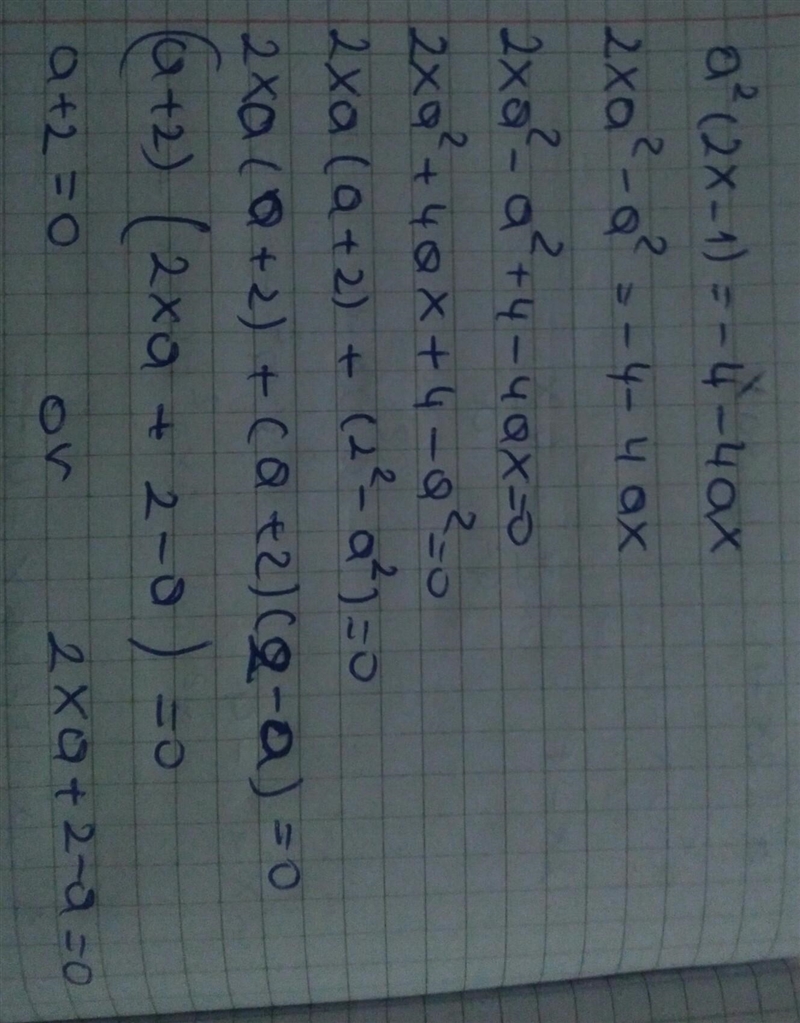 a²(2x-1) = -4-4ax
2xa² - a² = -4-4ax
2xa² - a² + 4 - 4ax=0
2xa² + 4ax + 4 - a² = 0
2xa(a+2) + (2² - a²) = 0
2xa(a+2) + (a+2)(2-a) = 0
(a+2)(2xa + 2-a) = 0
a+2=0 or 2xa+2-a=0